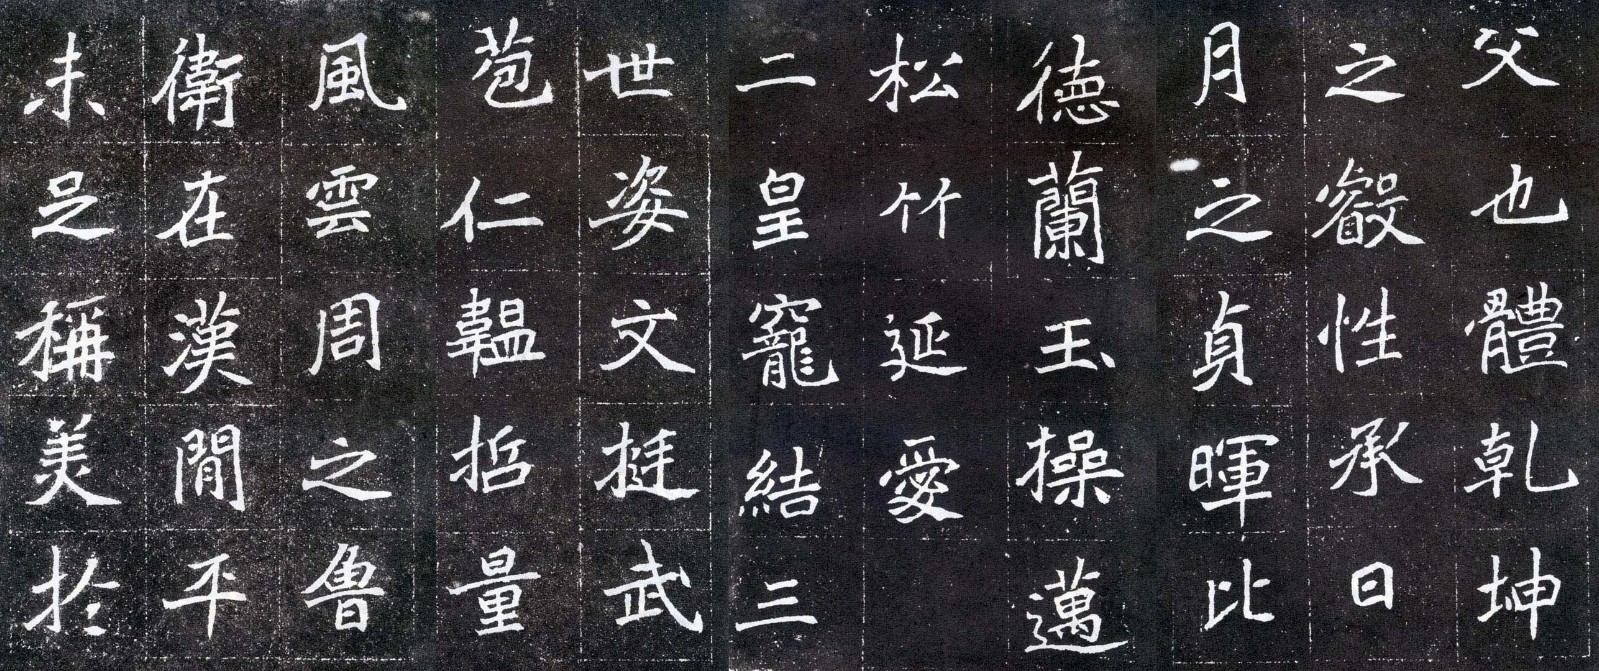 父也體乾坤
之叡性承日
月之貞暉比
德蘭玉操邁
松竹延愛
二皇寵結三
世姿文挺武
苞仁韞哲量
風雲周之魯
衛在漢間平
未足稱美於